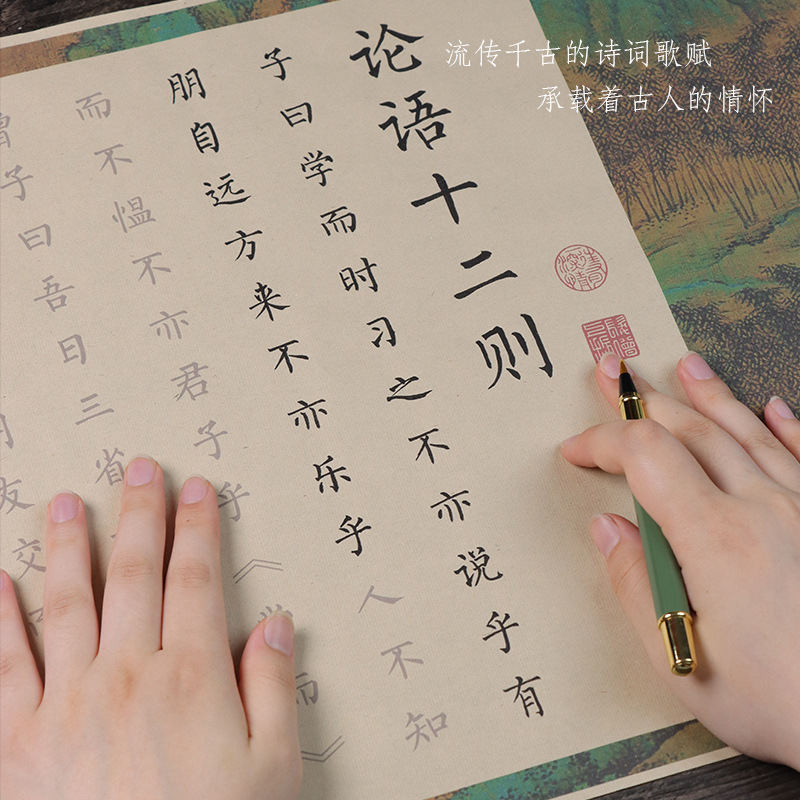 流传千古的诗词歌赋
承载着古人的情怀
论语十二则
子曰学而时习之不亦说乎有
朋自远方来不亦乐乎人不知
而不愠不亦君子乎《学而》
曾子曰吾日三省
友交